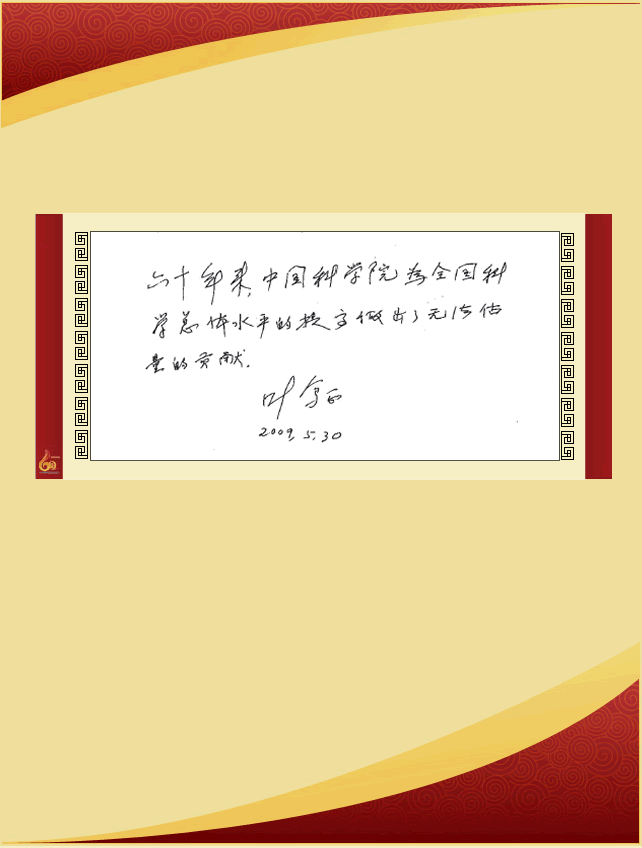 六十年来,中国科学院为全国科
学总体水平的提高做出了无法估
量的贡献.
叶笃正
2009.5.30